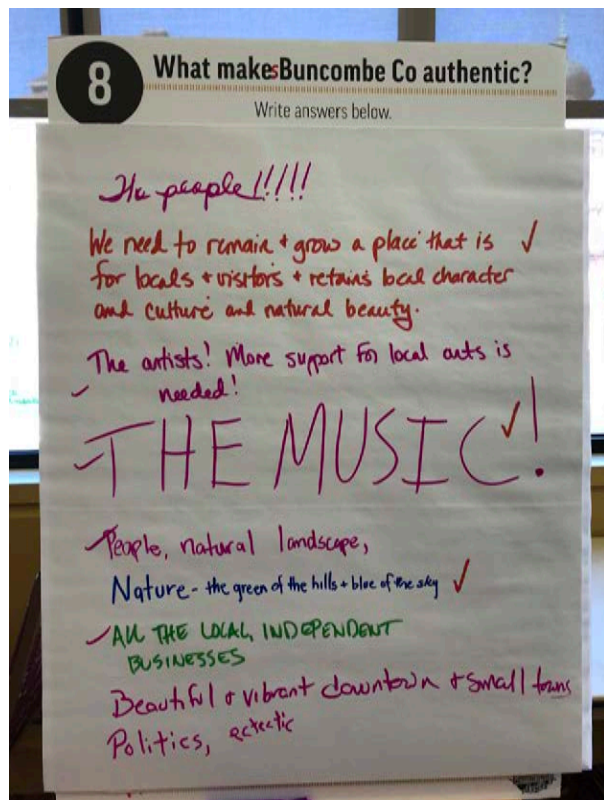 8
What makes Buncombe Co authentic?
Write answers below.
The people!!!!!
We need to remain + grow a place that is ✓
for locals + visitors + retains local character
and culture and natural beauty.
The artists! More support for local arts is
✓ needed!
✓ THE MUSIC ✓!
✓ People, natural landscape,
Nature - the green of the hills + blue of the sky ✓
✓ ALL THE LOCAL, INDEPENDENT
BUSINESSES
Beautiful + vibrant downtown + small towns
Politics, eclectic